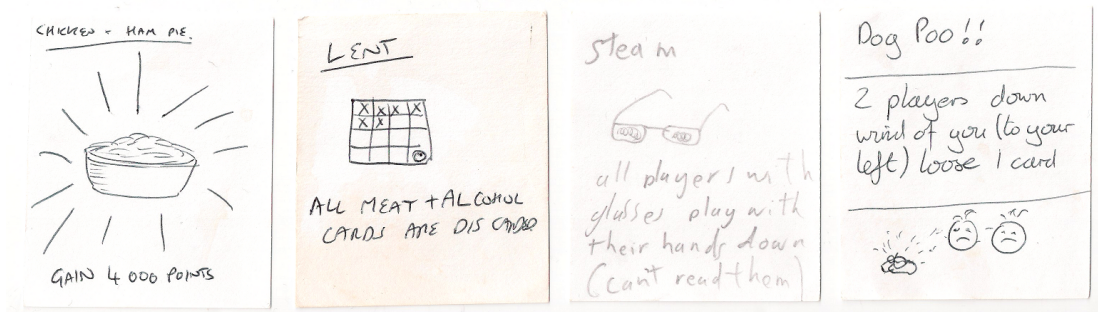 CHICKEN + HAM PIE.
GAIN 4000 POINTS
LENT
X X X X
X X
ALL MEAT + ALCOHOL
CARDS ARE DISCARDED
Steam
all players with
glasses play with
their hands down
(can't read them)
Dog Poo!!
2 players down
wind of you (to your
left) loose 1 card